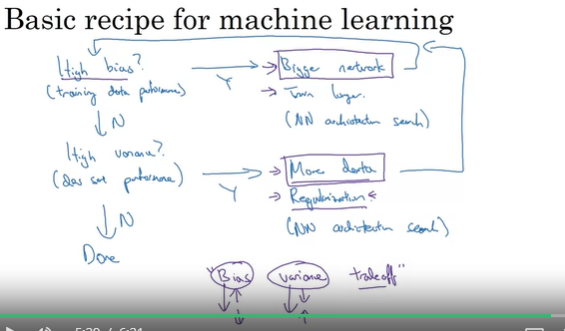 Basic recipe for machine learning
High bias?
(training data performance)
Y
Bigger network
Train longer
(NN architecture search)
N
High variance?
(dev set performance)
Y
More data
Regularization
(NN architecture search)
N
Done
"Bias variance tradeoff"